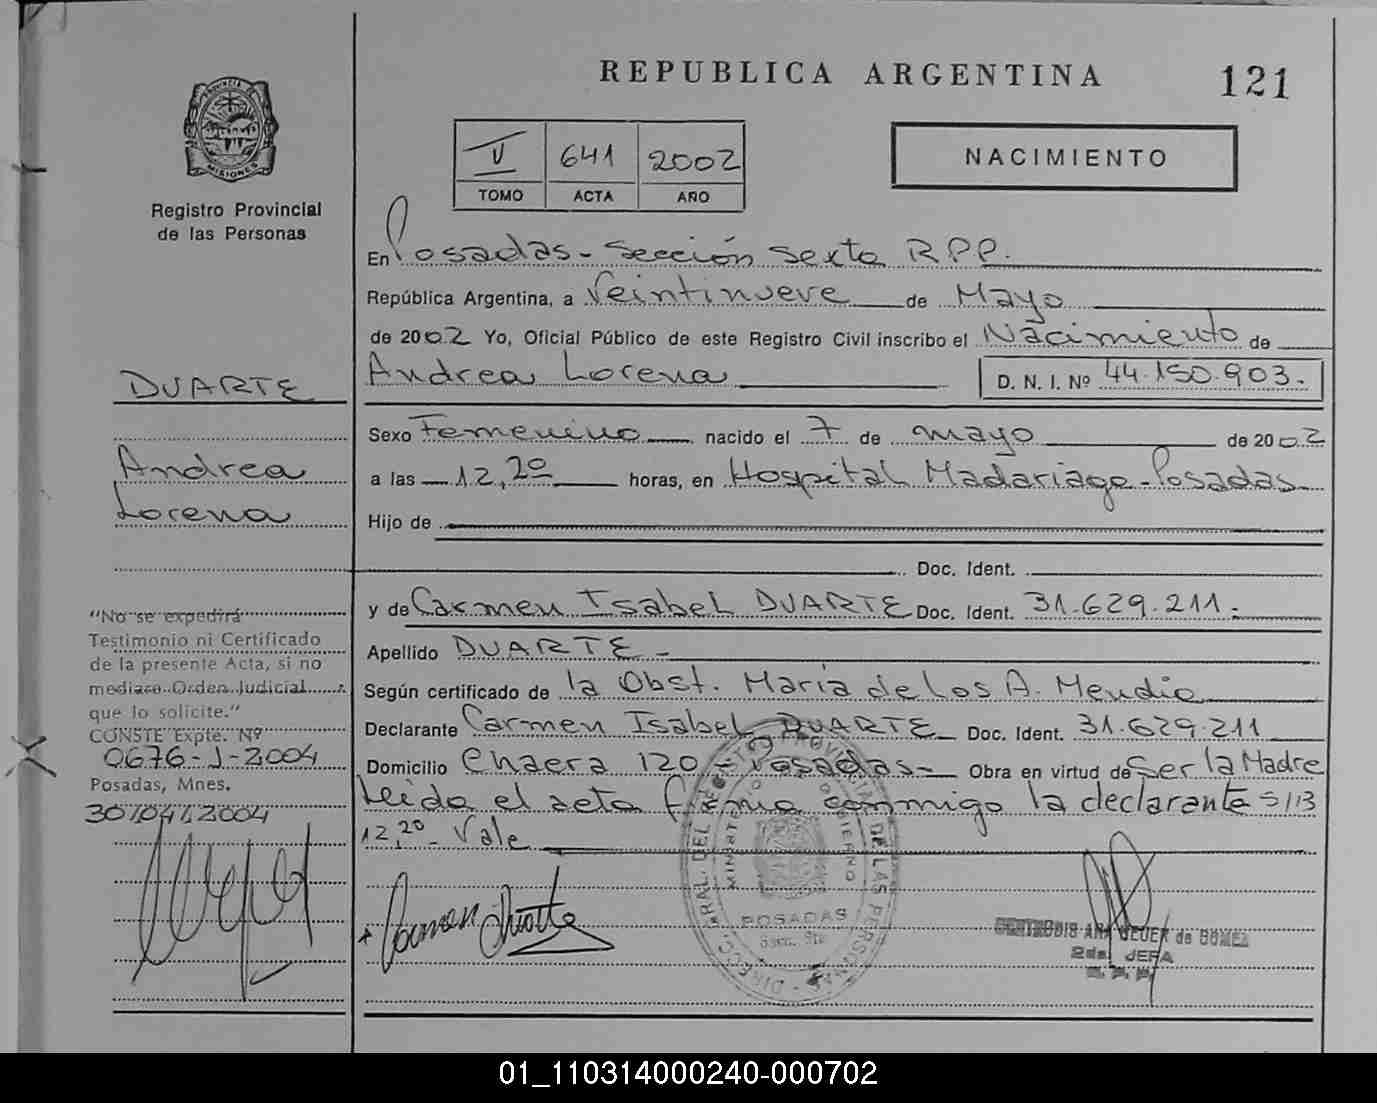 REPUBLICA ARGENTINA
121
PROVINCIA DE
MISIONES
Registro Provincial
de las Personas
V 641 2002
TOMO ACTA AÑO
NACIMIENTO
En Posadas - Sección Sexta R.P.P.
República Argentina, a Veintinueve de Mayo
de 2002 Yo, Oficial Público de este Registro Civil inscribo el Nacimiento de
Andrea Lorena D. N. I. Nº 44.150.903.
Sexo Femenino nacido el 7 de mayo de 2002
a las 12,20 horas, en Hospital Madariaga - Posadas
Hijo de
Doc. Ident.
y de Carmen Isabel DUARTE Doc. Ident. 31.629.211.
Apellido DUARTE -
Según certificado de la Obst. María de Los A. Mendic
Declarante Carmen Isabel DUARTE Doc. Ident. 31.629.211
Domicilio Chacra 120 - Posadas - Obra en virtud de Ser la Madre
Leida el acta firma conmigo la declarante S/B
12,20 - Vale
DUARTE
Andrea
Lorena
"No se expedirá
Testimonio ni Certificado
de la presente Acta, si no
mediare Orden Judicial
que lo solicite."
CONSTE Expte. Nº
0676-J-2004
Posadas, Mnes.
30/04/2004
Carmen Duarte
MINISTERIO DE GOBIERNO
POSADAS
Secc. 6ta
ANA de GOMEZ
2da. JEFA
R.P.P.
01_110314000240-000702